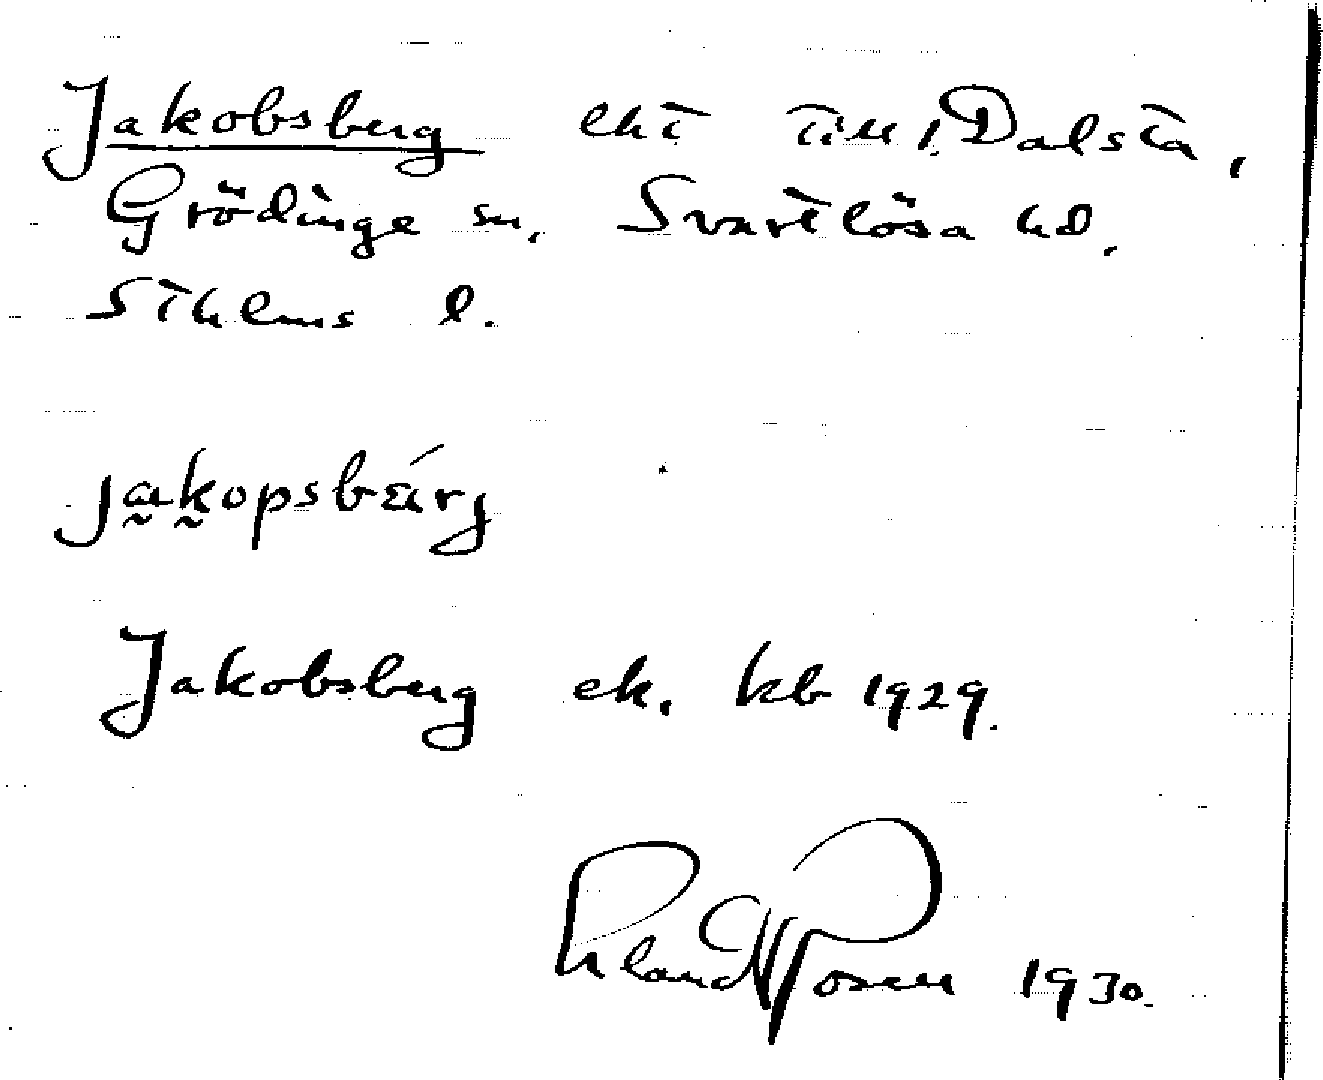 Jakobsberg eht till 1. Dalsta,
Grödinge sn, Svartlösa hd,
Sthlms l.
jakopsbärj
Jakobsberg ek. kb 1929.
Rosen 1930.